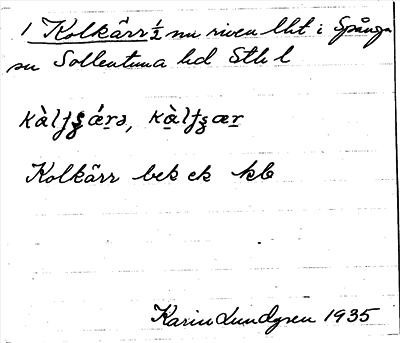 1 Kolkärr ½ nu riven lht i Spånga
sn Sollentuna hd Sthl l
Kolkärr bek ek kb
Karin Lundgren 1935